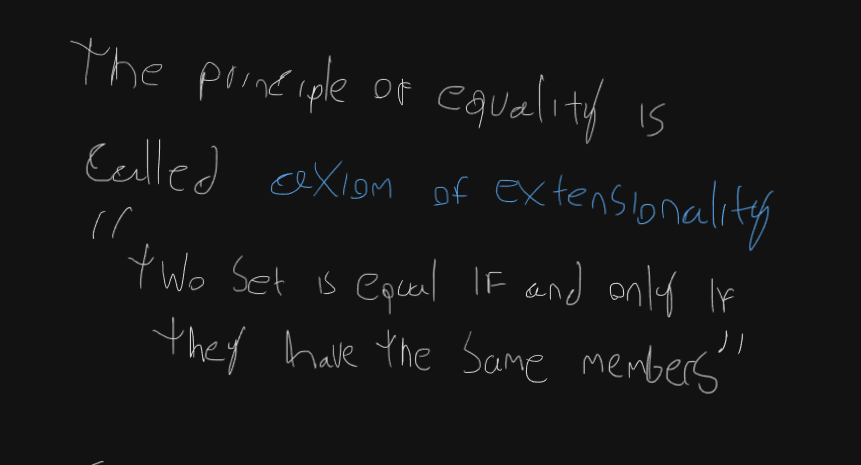 The principle of equality is
Called axiom of extensionality
"
Two Set is equal IF and only IF
they have the same members"